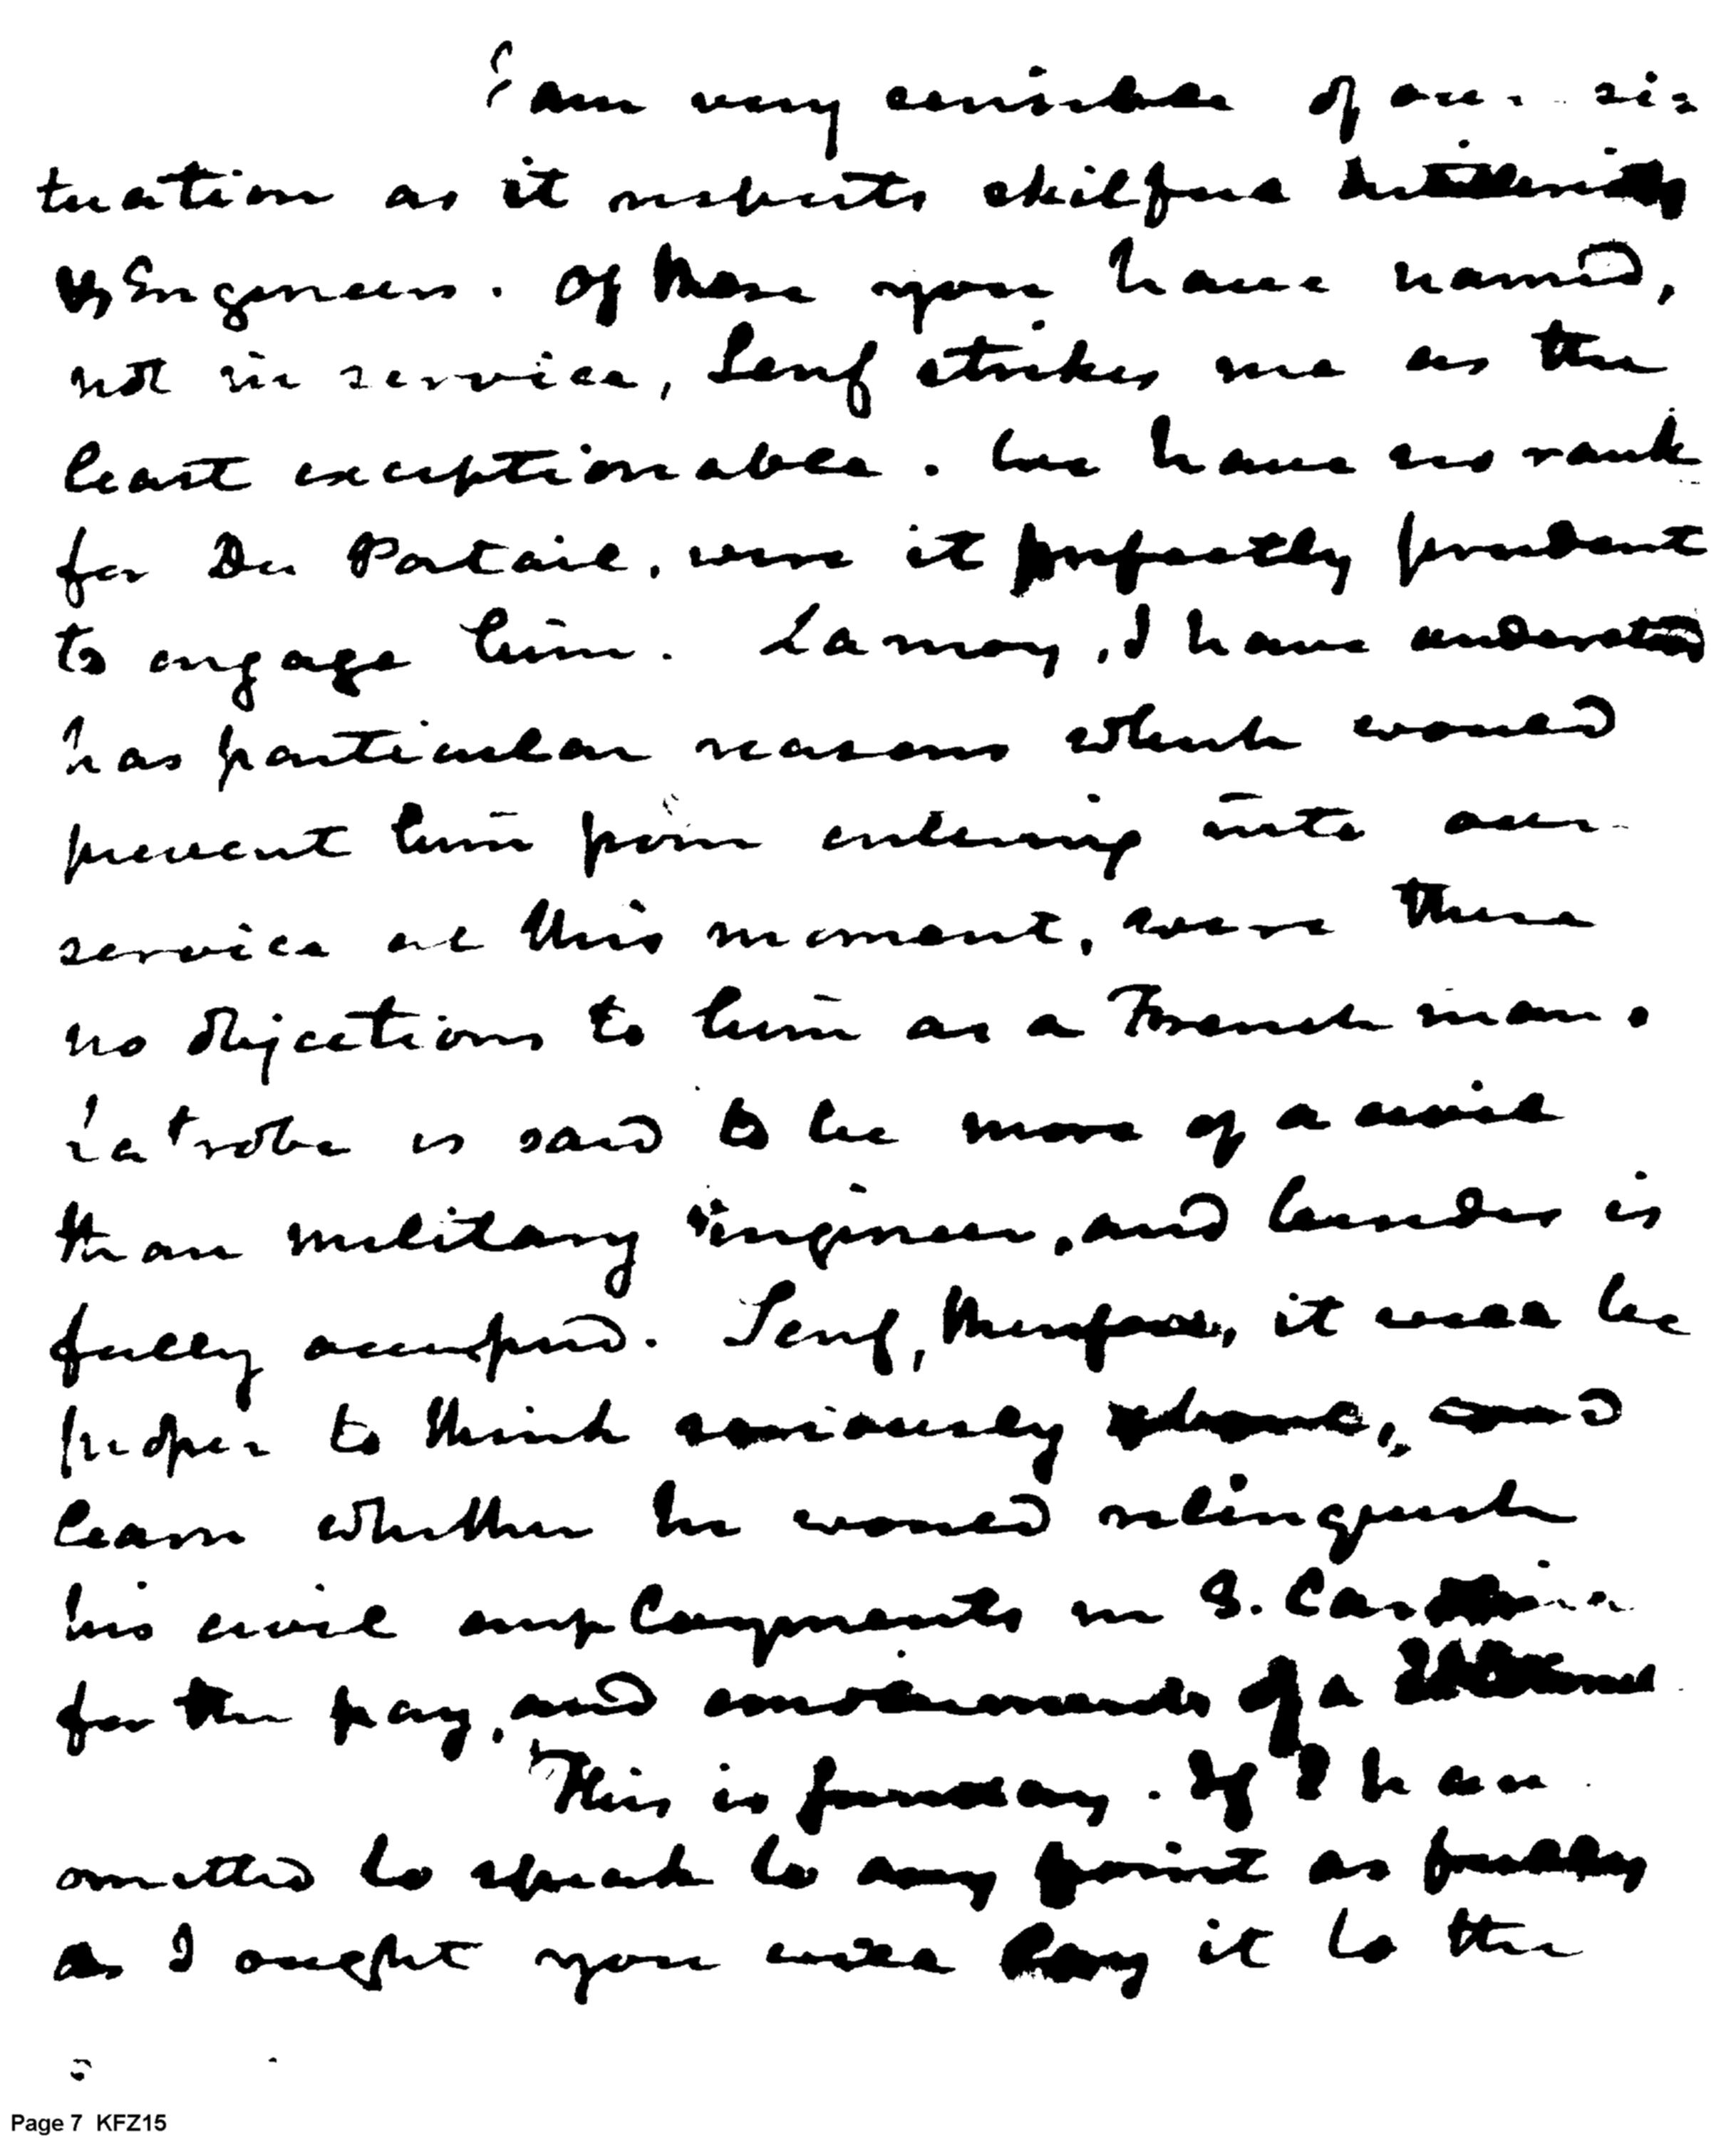 I am very sensible of our si=
tuation as it respects skilful artillerists
& Engineers. Of those you have named,
not in service, Senf strikes me as the
least exceptionable. We have no rank
for Du Portail, were it perfectly prudent
to engage him. Lamoy, I have understood
has particular reasons which would
prevent him from entering into our
service at this moment, were there
no objections to him as a French man.
Latrobe is said to be more of a civil
than military engineer, and besides is
fully occupied. Senf, therefore, it will be
proper to think seriously about, and
learn whether he would relinquish
his civil employments in S. Carolina
for the pay, and emoluments of a
This is sunday. If I have
omitted to speak to any point as fully
as I ought you will lay it to the
Page 7 KFZ15